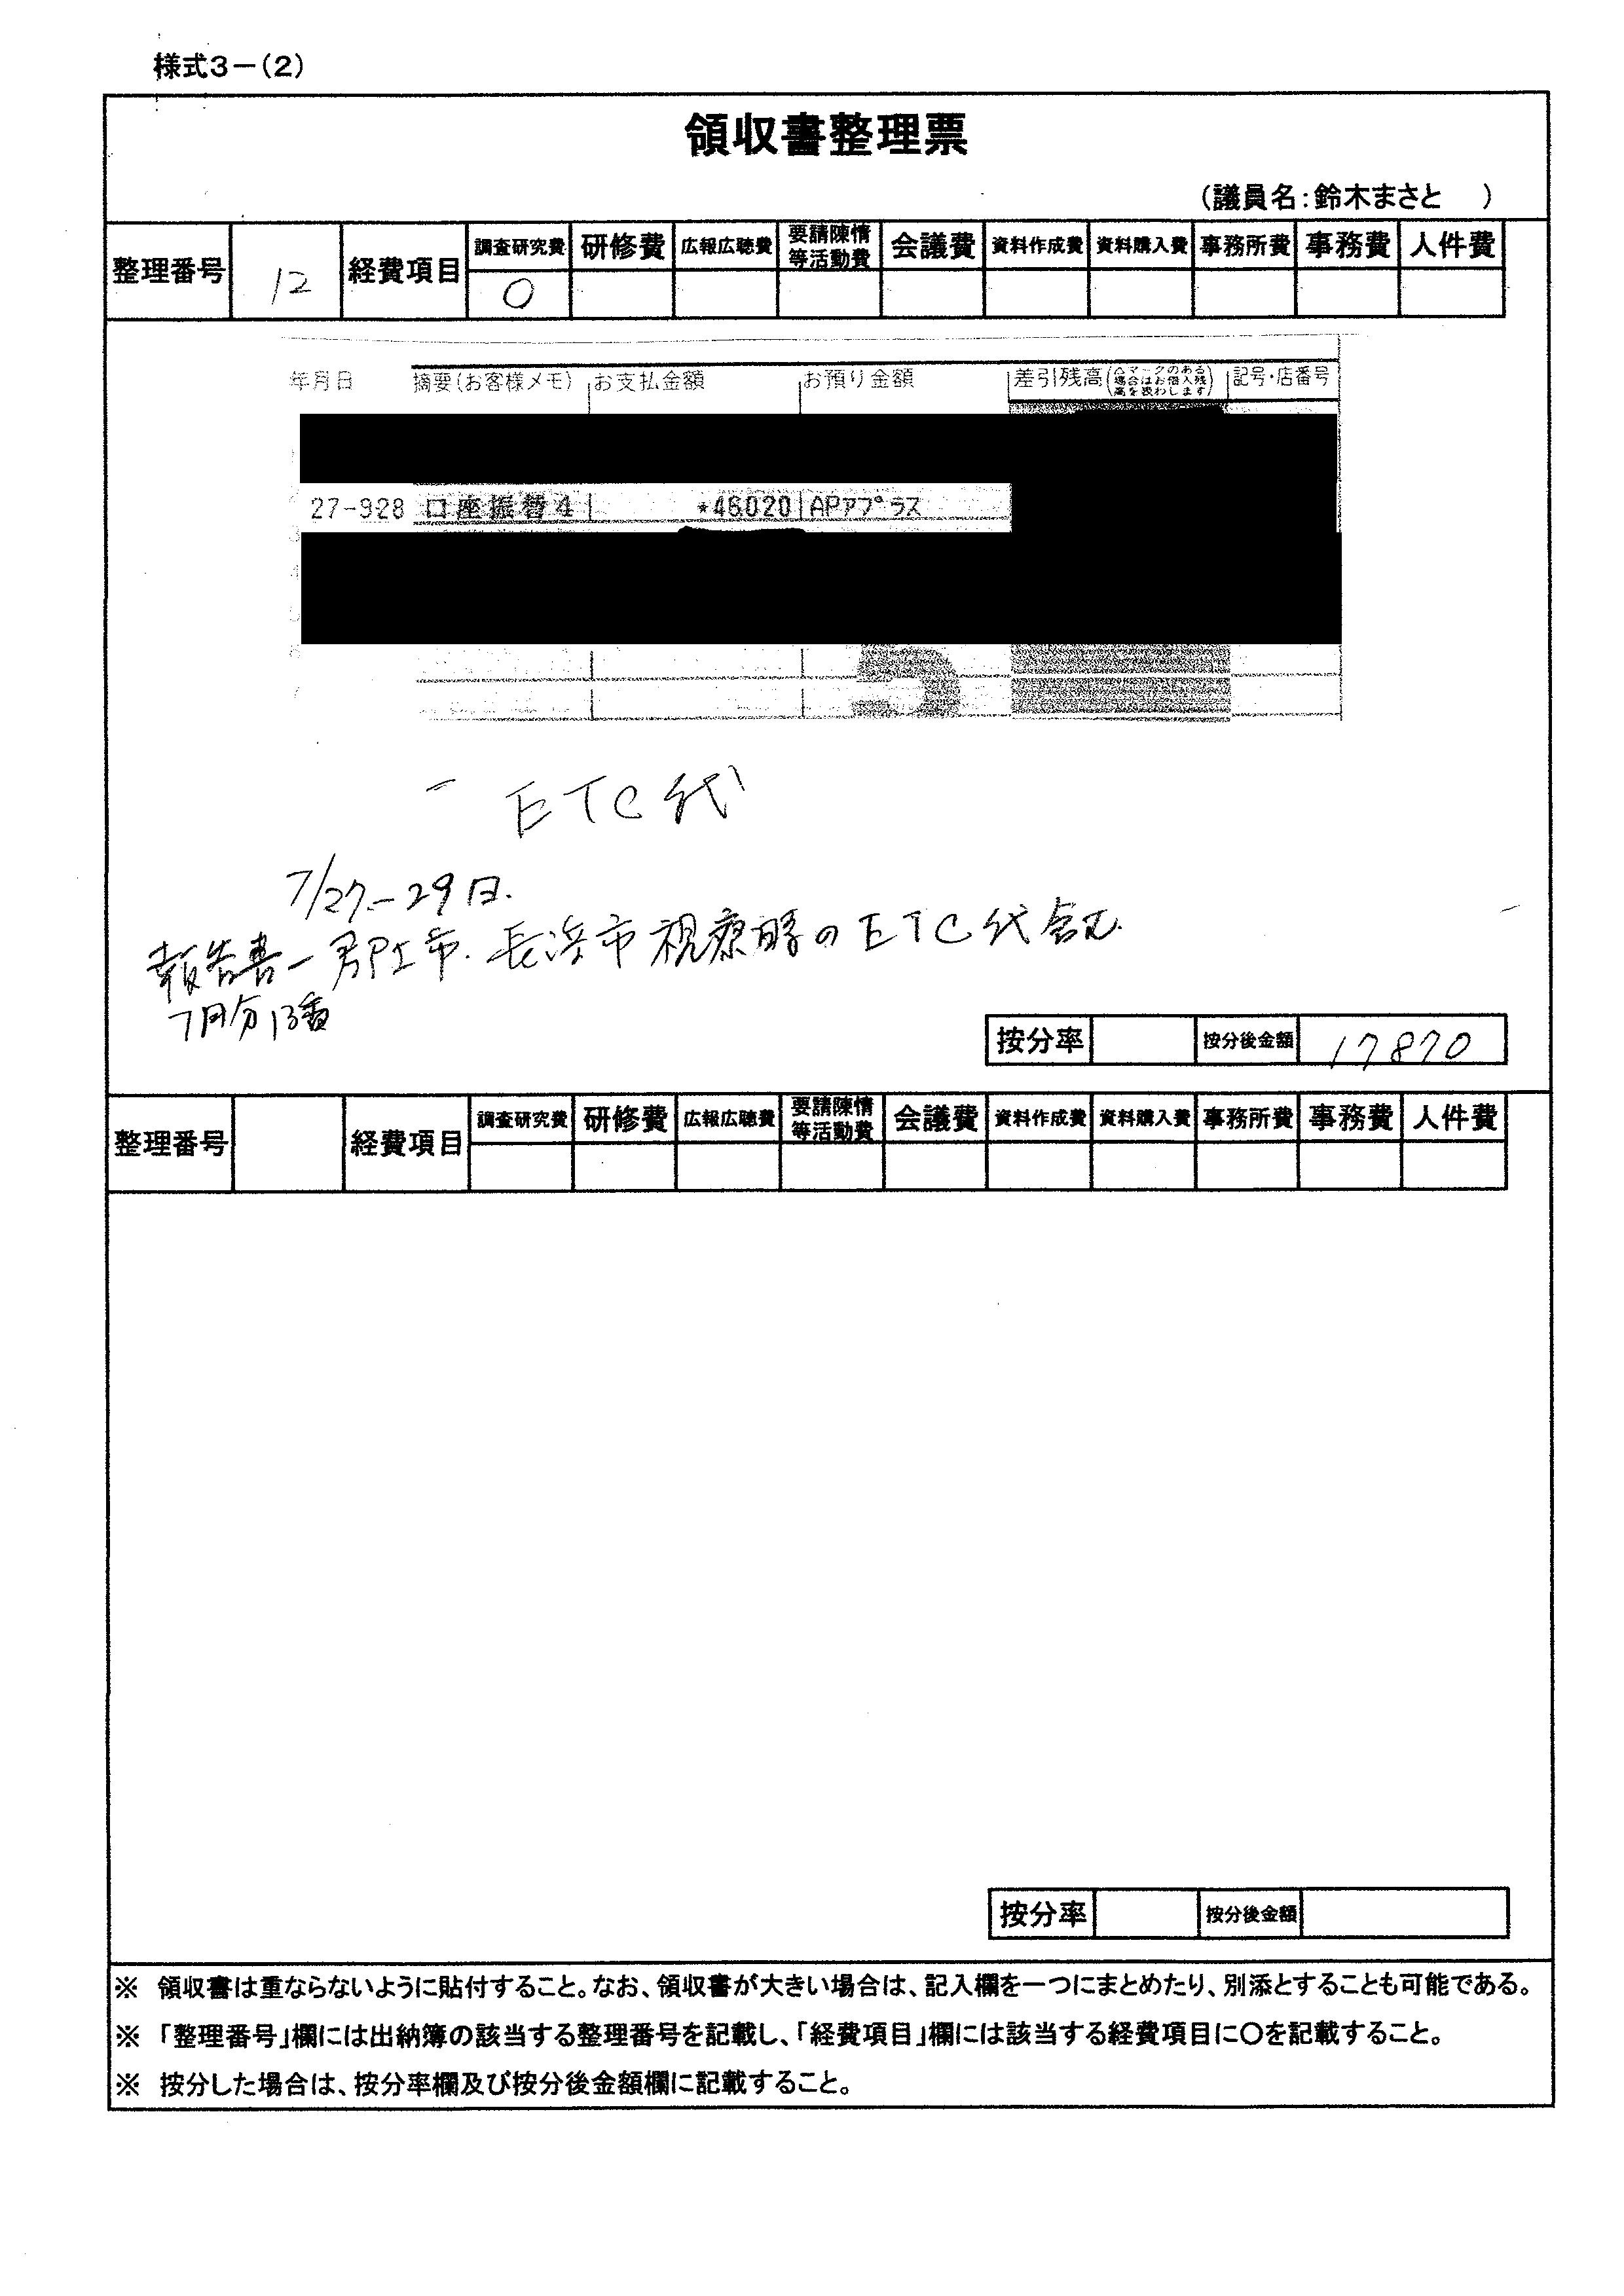 様式3－(2)
領収書整理票
(議員名:鈴木まさと　)
整理番号 12 経費項目 調査研究費 研修費 広報広聴費 要請陳情等活動費 会議費 資料作成費 資料購入費 事務所費 事務費 人件費
○
年月日 摘要(お客様メモ) お支払金額 お預り金額 差引残高(△マークのある場合はお借入残高を表わします) 記号・店番号
27-928 口座振替4 *46020 APアプラス
ETC代
7/27-29日.
報告書ー郡上市.長浜市視察時のETC代含む.
7月分13番
按分率 按分後金額 17870
整理番号 経費項目 調査研究費 研修費 広報広聴費 要請陳情等活動費 会議費 資料作成費 資料購入費 事務所費 事務費 人件費
按分率 按分後金額
※ 領収書は重ならないように貼付すること。なお、領収書が大きい場合は、記入欄を一つにまとめたり、別添とすることも可能である。
※ 「整理番号」欄には出納簿の該当する整理番号を記載し、「経費項目」欄には該当する経費項目に○を記載すること。
※ 按分した場合は、按分率欄及び按分後金額欄に記載すること。